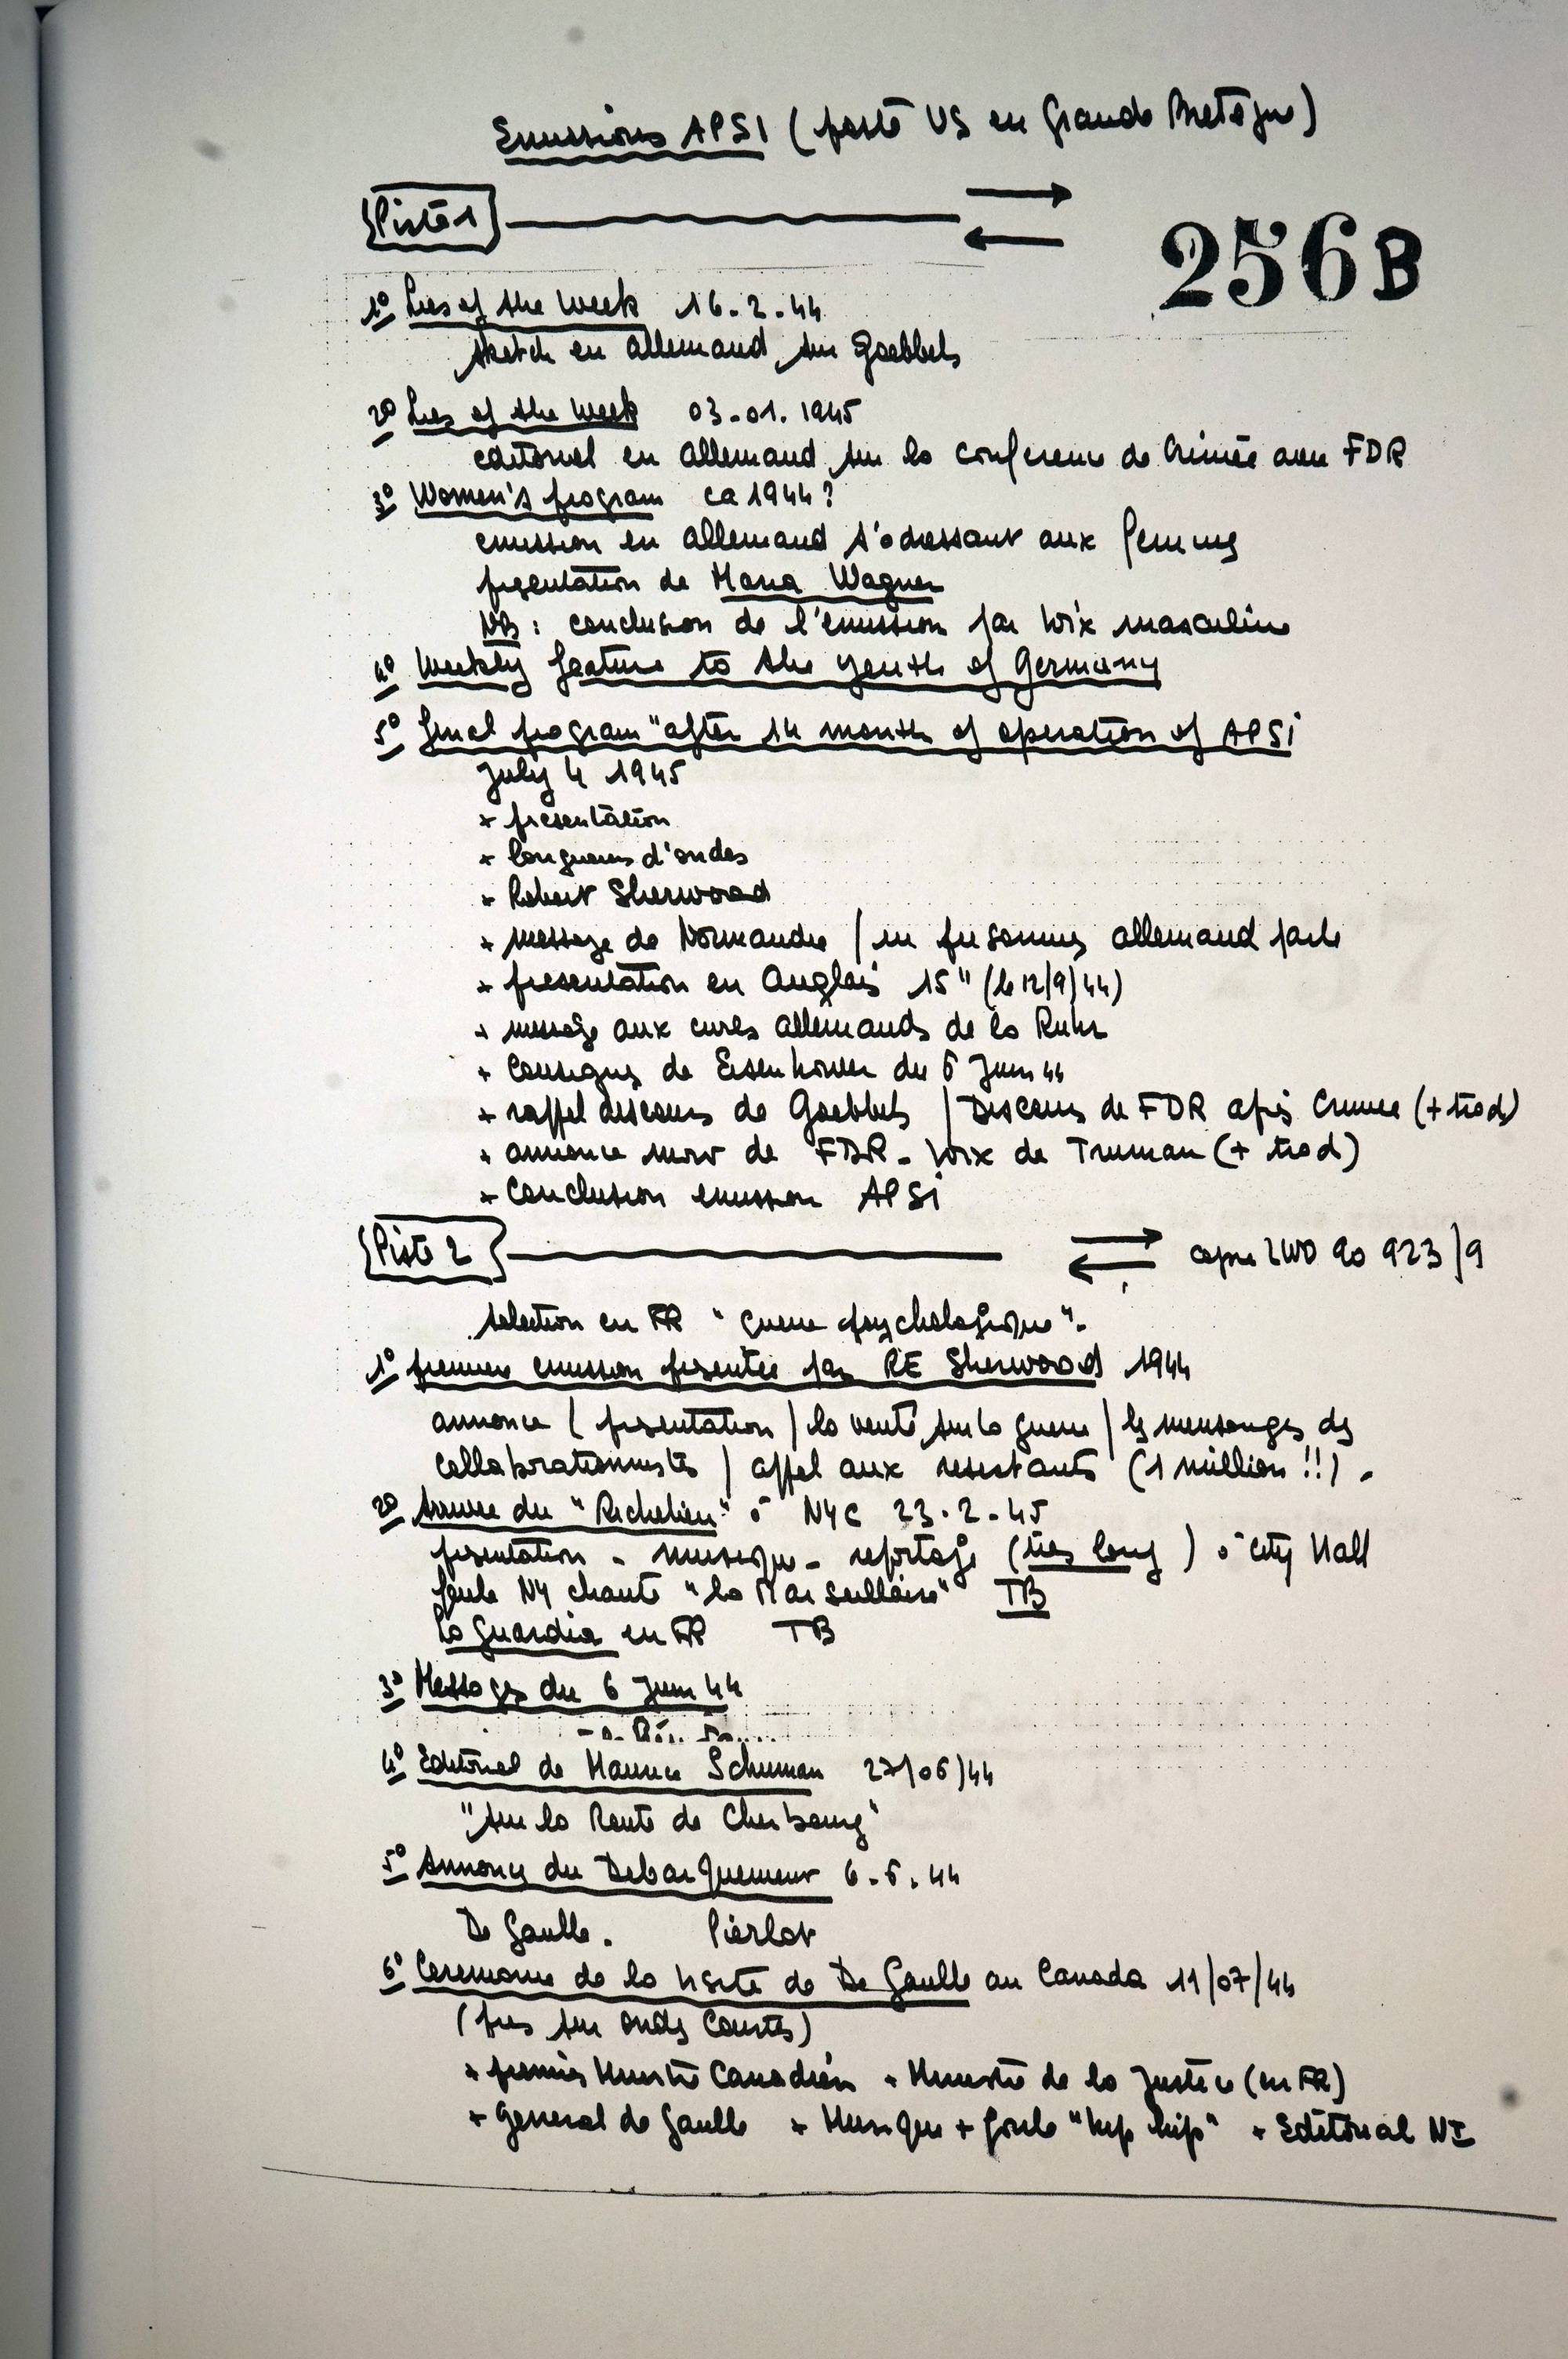 Emissions APSI (poste US en Grande Bretagne)
Piste 1
256B
1° Lies of the Week 16.2.44
sketch en allemand sur Goebbels
2° Lies of the Week 03-01.1945
editoriel en allemand sur la conference de Crimée avec FDR
3° Women's program ca 1944?
emission en allemand s'adressant aux femmes
presentation de Maria Wagner
NB: conclusion de l'emission par voix masculine
4° Weekly feature to the youth of Germany
5° final program "after 14 month of operation of APSI
July 4 1945
+ presentation
+ longueurs d'ondes
+ Robert Sherwood
+ message de Normandie / un prisonnier allemand parle
+ presentation en Anglais 15" (le 12/9/44)
+ message aux cures allemands de la Ruhr
+ consignes de Eisenhower du 6 Juin 44
+ rappel discours de Goebbels / Discours de FDR apres Crimee (+ trad)
+ annonce mort de FDR - voix de Truman (+ trad)
+ conclusion emission APSI
Piste 2
copie LWO 90 923/9
selection en FR "guerre psychologique".
1° premiere emission presentée par RE Sherwood 1944
annonce / presentation / la verité sur la guerre / les mensonges des
collaborationnistes / appel aux resistants (1 million !!).
2° Arrivee du "Richelieu" à NYC 23.2-45
presentation - musique - reportage (tres long) à City Hall
foule NY chante "la Marseillaise" TB
La Guardia en FR TB
3° Messages du 6 Juin 44
4° Editorial de Maurice Schuman 27/06/44
"Sur la Route de Cherbourg"
5° Annonce du Debarquement 6.6.44
De Gaulle. Pierlot
6° Ceremonie de la visite de De Gaulle au Canada 11/07/44
(pris sur ondes courtes)
+ premier Ministre Canadien + Ministre de la Justice (en FR)
+ General de Gaulle + Musique + foule "hip hip" + Editorial NI